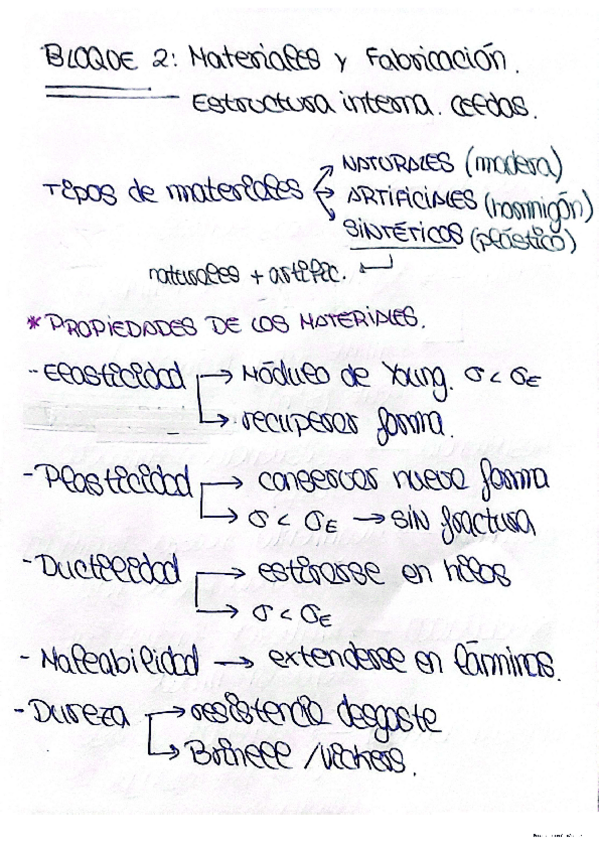 BLOQUE 2: Materiales y Fabricación.
Estructura interna. Celdas.
Tipos de materiales → NATURALES (madera)
→ ARTIFICIALES (hormigón)
→ SINTÉTICOS (plástico)
naturales + artific. ↵
* PROPIEDADES DE LOS MATERIALES.
- Elasticidad → Módulo de Young. σ < σE
→ recuperar forma.
- Plasticidad → conservar nueva forma
→ σ < σE → sin fractura
- Ductilidad → estirarse en hilos
→ σ < σE
- Maleabilidad → extenderse en lárminas.
- Dureza → resistencia desgaste
→ Brinell / Vickers.